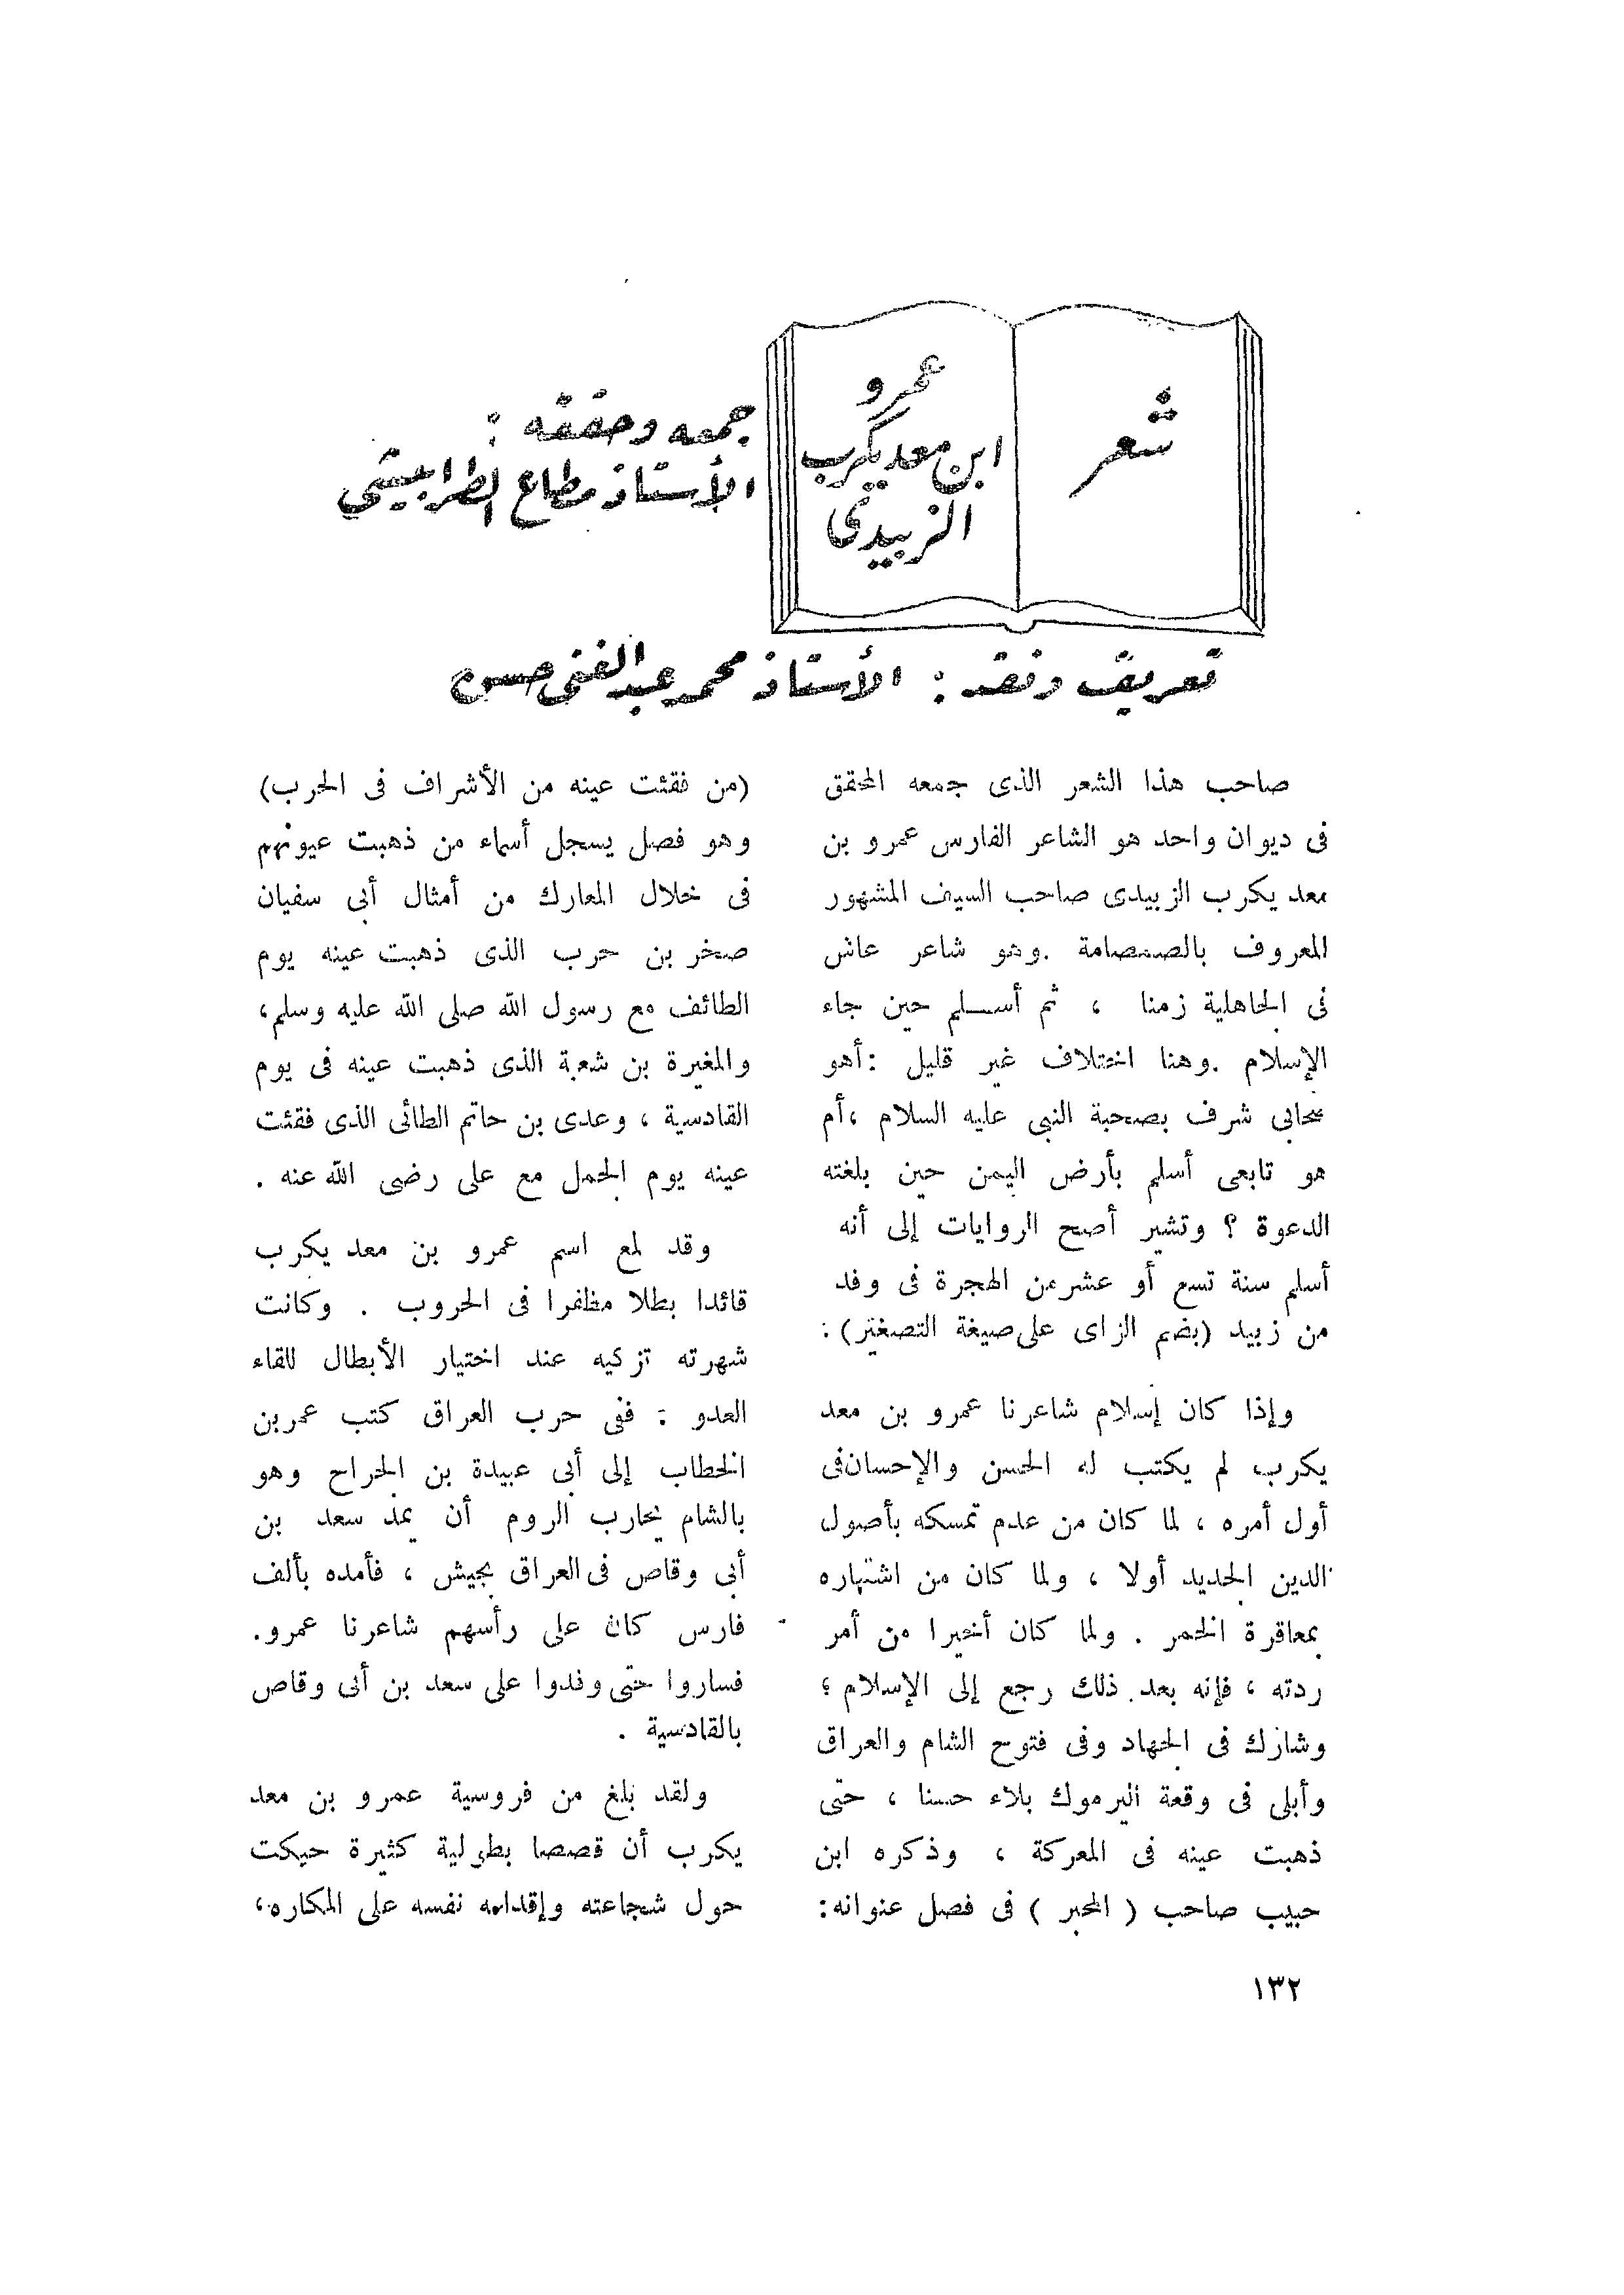 شعر
عمرو
ابن معد يكرب
الزبيدى
جمعه وحققه :
الأستاذ مطاع الطرابيشى
تعريف ونقد : الأستاذ محمد عبد الغنى حسن
صاحب هذا الشعر الذى جمعه المحقق
فى ديوان واحد هو الشاعر الفارس عمرو بن
معد يكرب الزبيدى صاحب السيف المشهور
المعروف بالصمصامة .وهو شاعر عاش
فى الجاهلية زمنا ، ثم أسلم حين جاء
الإسلام .وهنا اختلاف غير قليل :أهو
صحابى شرف بصحبة النبى عليه السلام ،أم
هو تابعى أسلم بأرض اليمن حين بلغته
الدعوة ؟ وتشير أصح الروايات إلى أنه
أسلم سنة تسع أو عشر من الهجرة فى وفد
من زبيد (بضم الزاى على صيغة التصغير) :
وإذا كان إسلام شاعرنا عمرو بن معد
يكرب لم يكتب له الحسن والإحسان فى
أول أمره ، لما كان من عدم تمسكه بأصول
الدين الجديد أولا ، ولما كان من اشتهاره
بمعاقرة الخمر . ولما كان أخيرا من أمر
ردته ، فإنه بعد ذلك رجع إلى الإسلام ؛
وشارك فى الجهاد وفى فتوح الشام والعراق
وأبلى فى وقعة اليرموك بلاء حسنا ، حتى
ذهبت عينه فى المعركة ، وذكره ابن
حبيب صاحب ( المحبر ) فى فصل عنوانه:
(من فقئت عينه من الأشراف فى الحرب)
وهو فصل يسجل أسماء من ذهبت عيونهم
فى خلال المعارك من أمثال أبى سفيان
صخر بن حرب الذى ذهبت عينه يوم
الطائف مع رسول الله صلى الله عليه وسلم،
والمغيرة بن شعبة الذى ذهبت عينه فى يوم
القادسية ، وعدى بن حاتم الطائى الذى فقئت
عينه يوم الجمل مع على رضى الله عنه .
وقد لمع اسم عمرو بن معد يكرب
قائدا بطلا مظفرا فى الحروب . وكانت
شهرته تزكيه عند اختيار الأبطال للقاء
العدو : ففى حرب العراق كتب عمر بن
الخطاب إلى أبى عبيدة بن الجراح وهو
بالشام يحارب الروم أن يمد سعد بن
أبى وقاص فى العراق بجيش ، فأمده بألف
فارس كان على رأسهم شاعرنا عمرو.
فساروا حتى وفدوا على سعد بن أبى وقاص
بالقادسية .
ولقد بلغ من فروسية عمرو بن معد
يكرب أن قصصا بطولية كثيرة حيكت
حول شجاعته وإقدامه نفسه على المكاره،
١٣٢